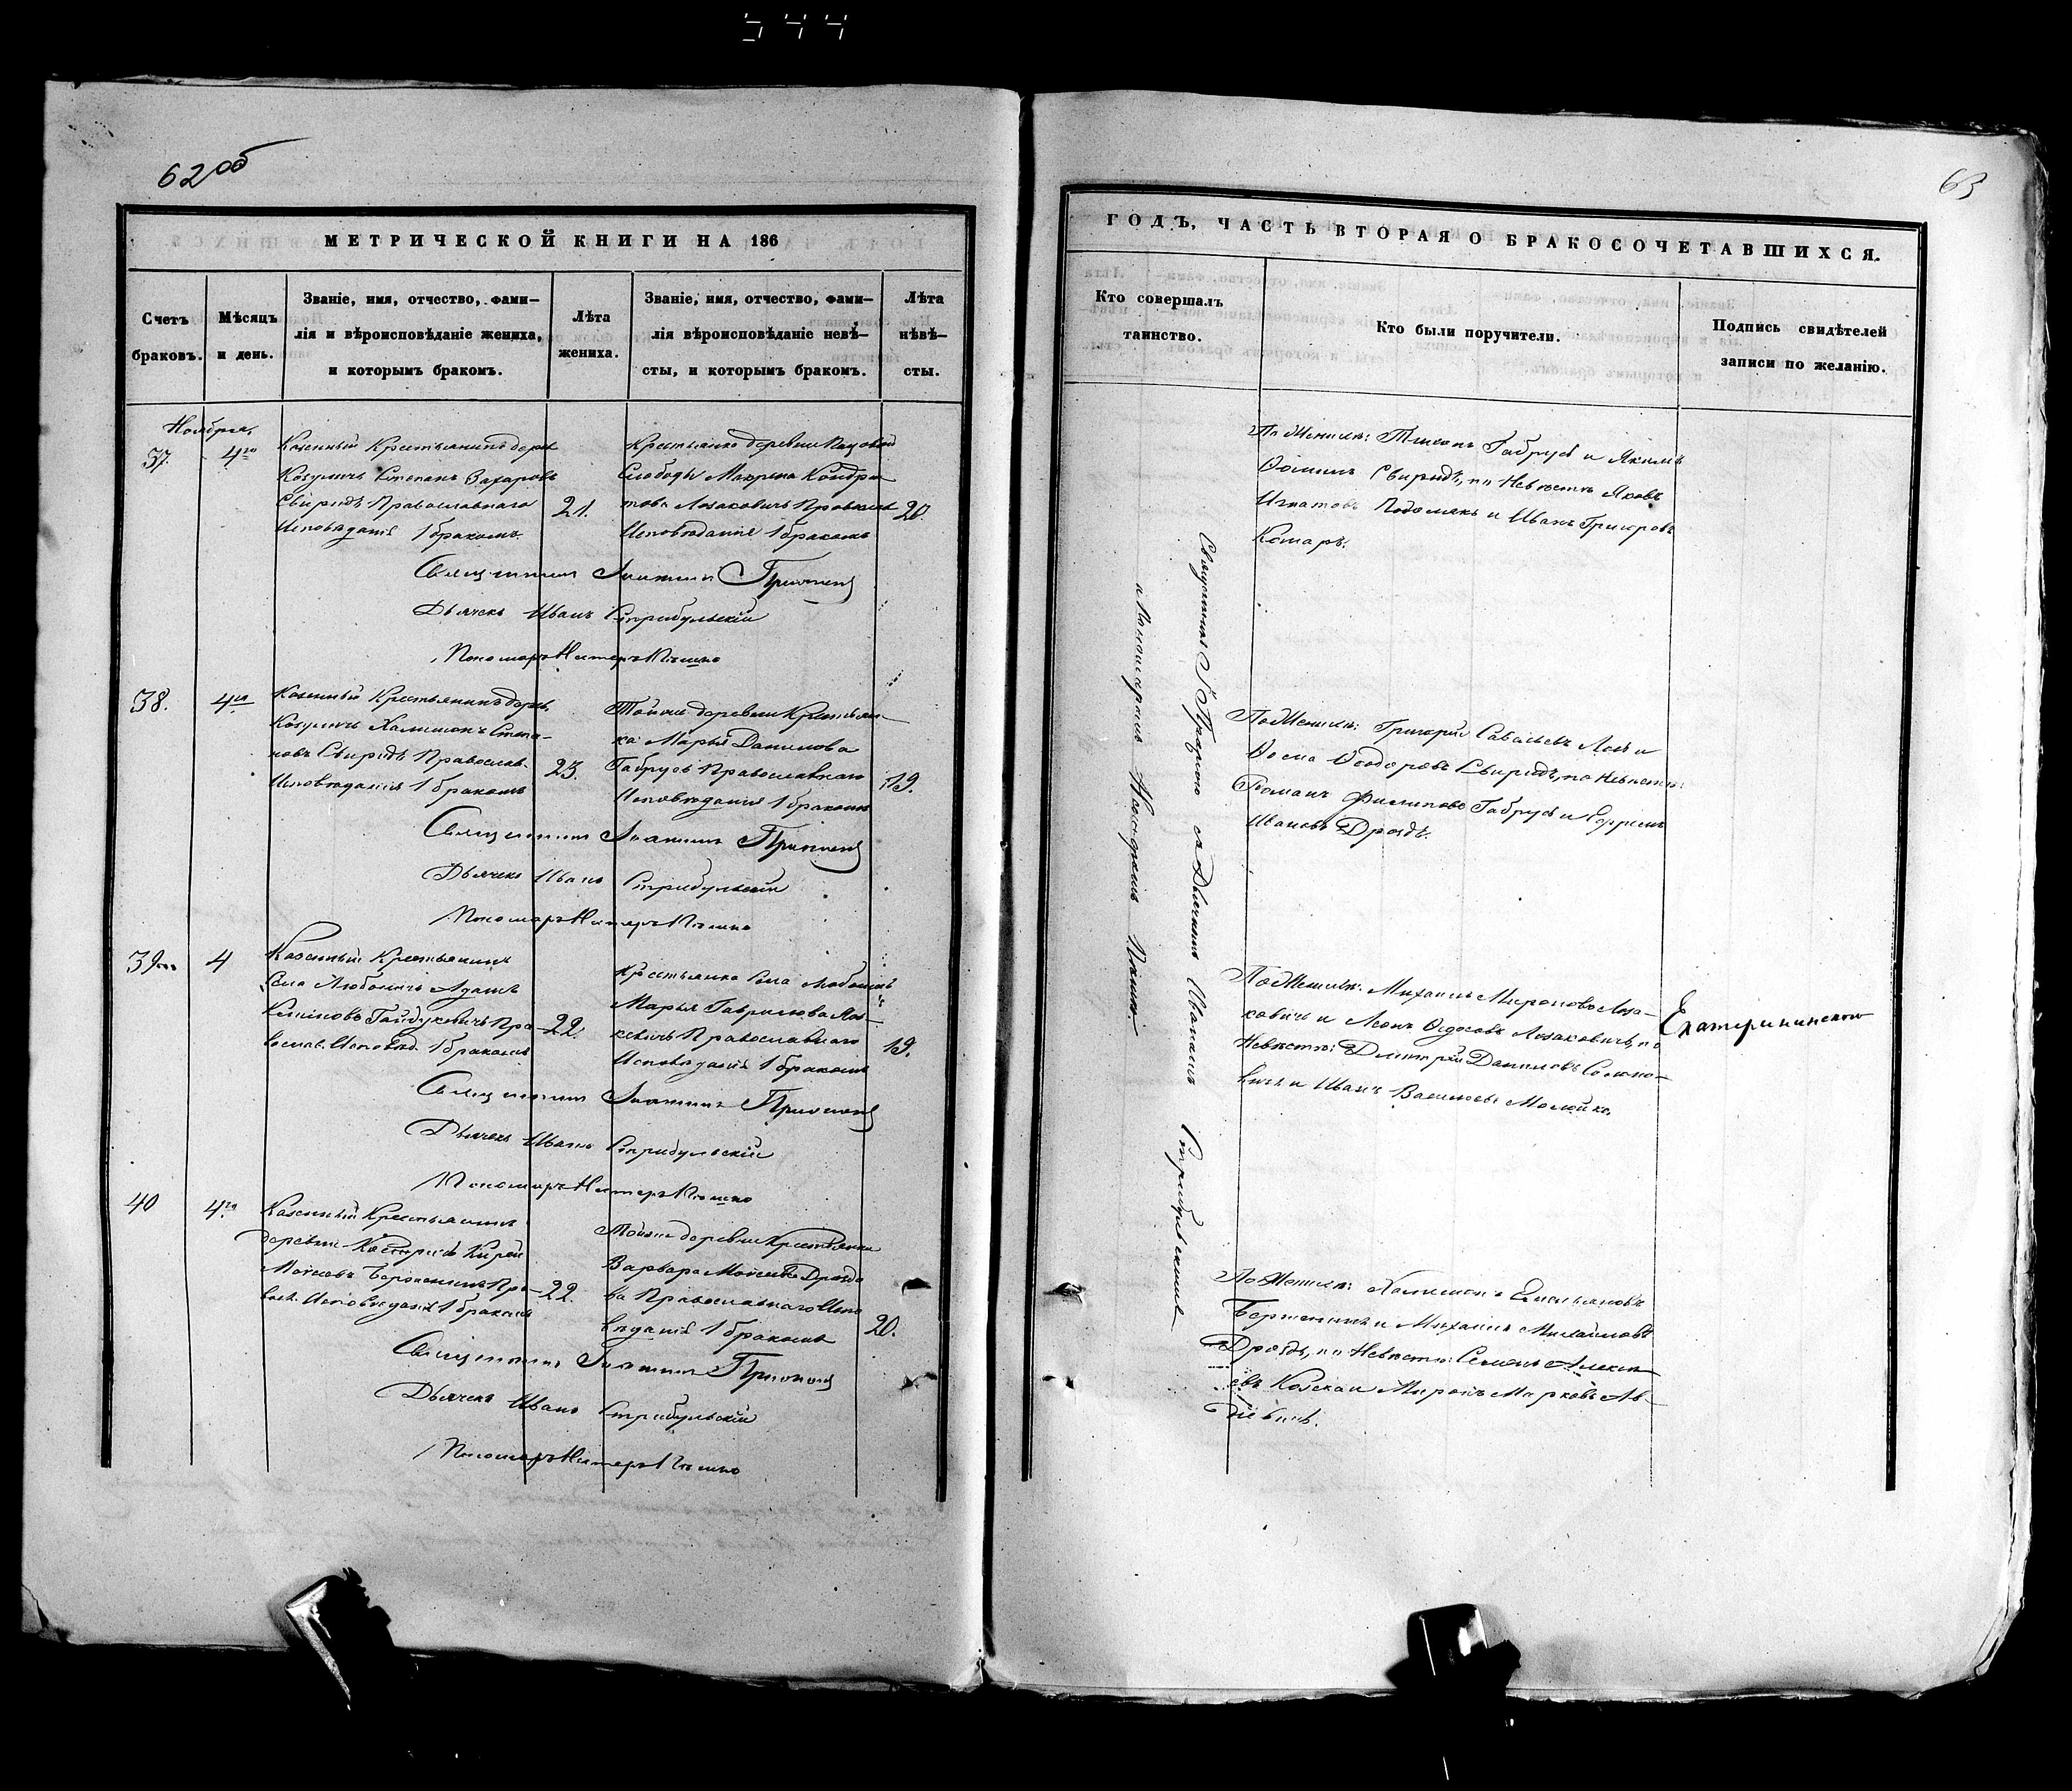 544
62 об
МЕТРИЧЕСКОЙ КНИГИ НА 186
Счетъ
браковъ.
Мѣсяцъ
и день.
Званіе, имя, отчество, фами-
лія и вѣроисповѣданіе жениха,
и которымъ бракомъ.
Лѣта
жениха.
Званіе, имя, отчество, фами-
лія вѣроисповѣданіе невѣ-
сты, и которымъ бракомъ.
Лѣта
нѣвѣ-
сты.
Ноября
37.
4го
Казенный Крестьянинъ дерев
Козуличъ Степанъ Захаровъ
Свиридъ Православнаго
Исповѣданія 1 бракомъ
21.
Крестьянка деревни
Слободы Макрина Кондра
това Лозаковичъ
Исповѣданія 1 бракомъ
20.
Священникъ Іоаннъ
Дьячекъ Иванъ Стрибульскій
Пономарь
38.
4го
Казенный Крестьянинъ дерев.
Козуличъ Халимонъ Степа-
новъ Свиридъ Православ.
Исповѣданія 1 бракомъ
23.
Тойже деревни Крестьян-
ка Марья Данилова
Габрусь Православнаго
Исповѣданія 1 бракомъ
19.
Священникъ Іоаннъ
Дьячекъ Иванъ Стрибульскій
Пономарь
39
4
Казенный Крестьянинъ
Села Любоничъ Адамъ
Гайдукевичъ Пра-
вослав. Исповѣд. 1 бракомъ
22.
Крестьянка Села Любоничъ
Марья Гаврилова Лоз-
кевичъ Православнаго
Исповѣданія 1 бракомъ
19.
Священникъ Іоаннъ
Дьячекъ Иванъ Стрибульскій
Пономарь
40
4го
Казенный Крестьянинъ
деревни Костричъ Кирей
Пра-
восл. Исповѣданія 1 бракомъ
22.
Тойже деревни Крестьянка
Варвара Моисеева Дроздо
ва Православнаго Испо
вѣданія 1 бракомъ
20.
Священникъ Іоаннъ
Дьячекъ Иванъ Стрибульскій
Пономарь
63
ГОДЪ, ЧАСТЬ ВТОРАЯ О БРАКОСОЧЕТАВШИХСЯ.
Кто совершалъ
таинство.
Кто были поручители.
Подпись свидѣтелей
записи по желанію.
Священникъ съ Дьячкомъ Иваномъ Стрибульскимъ
и Пономаремъ
По Женихѣ: Габрусь и Якимъ
Свиридъ, по Невѣстѣ Яковъ
Игнатовъ и Иванъ Григоровъ
Комаръ.
По Женихѣ: Григорій Савельевъ и
Ѳома Ѳеодоровъ Свиридъ, по Невѣстѣ:
Романъ Филиповъ Габрусь и
Ивановъ Дроздъ.
По Женихѣ: Михаилъ Мироновъ Лоза-
ковичъ и Леонъ Ѳедосовъ Лозаковичъ, по
Невѣстѣ: Дмитрій Даниловъ
и Иванъ Васильевъ
Екатерининскою
По Женихѣ: Халимонъ Емельяновъ
и Михаилъ Михайловъ
Дроздъ, по Невѣстѣ: Семенъ Алексѣ
евъ и Миронъ Марковъ Ав-